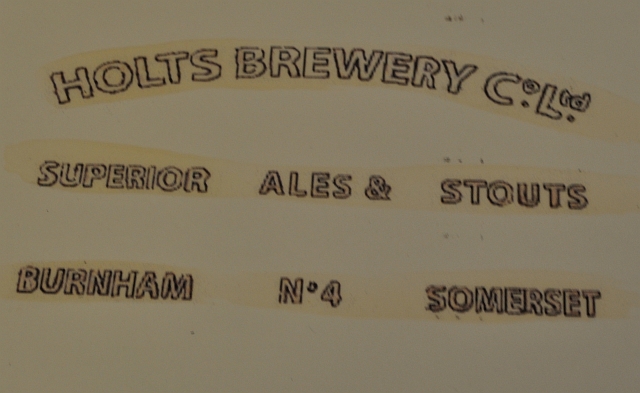 HOLTS BREWERY Co. Ltd.
SUPERIOR ALES & STOUTS
BURNHAM No 4 SOMERSET